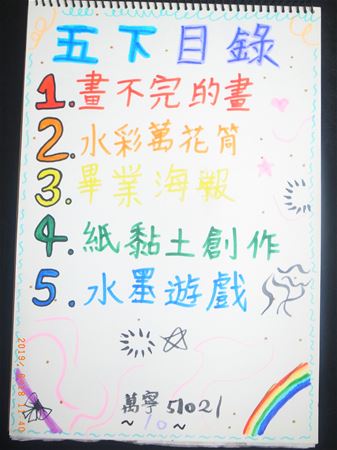 五下目錄
1.畫不完的畫
2.水彩萬花筒
3.畢業海報
4.紙黏土創作
5.水墨遊戲
萬寧 51021
~10~